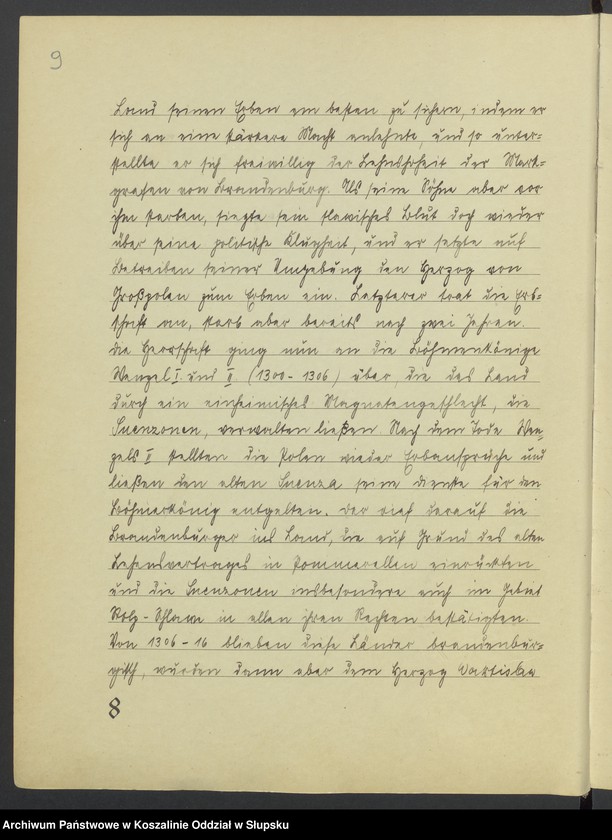 9
Land seinen Erben am besten zu sichern, indem er
sich an eine stärkere Macht anlehnte, und so unter=
stellte er sich freiwillig der Lehnshoheit der Mark=
grafen von Brandenburg. Als seine Söhne aber vor
ihm starben, siegte sein slawisches Blut doch wieder
über seine politische Klugheit, und er setzte auf
Betreiben seiner Umgebung den Herzog von
Großpolen zum Erben ein. Letzterer trat die Erb=
schaft an, starb aber bereits nach zwei Jahren.
die Herrschaft ging nun an die Böhmenkönige
Wenzel I und II (1300 - 1306) über, die das Land
durch ein einheimisches Magnatengeschlecht, die
Swenzonen, verwalten ließen. Nach dem Tode Wen=
zels II stellten die Polen wieder Erbansprüche und
ließen den alten Swenza seine Dienste für den
Böhmerkönig entgelten. der rief darauf die
Brandenburger ins Land, die auf Grund des alten
Lehensvertrages in Pommerellen einrückten
und die Swenzonen insbesondere auch im Gebiet
Stolp - Schlawe in allen ihren Rechten bestätigten.
Von 1306 - 16 blieben diese Länder brandenbur=
gisch, wurden dann aber dem Herzog Wartislaw
8
Archiwum Państwowe w Koszalinie Oddział w Słupsku